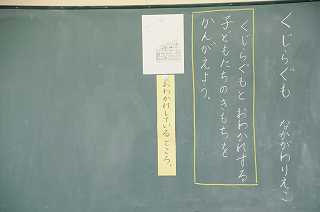 くじらぐも　なかがわりえこ
くじらぐもとおわかれする
子どもたちのきもちを
かんがえよう。
おわかれしているところ。